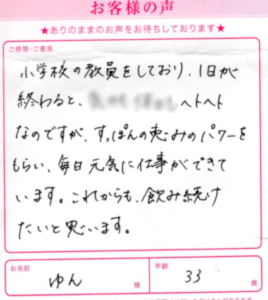 お客様の声
★ありのままのお声をお待ちしております★
ご感想・ご意見
小学校の教員をしており、1日が
終わると、ヘトヘト
なのですが、すっぽんの恵みのパワーを
もらい、毎日元気に仕事ができて
います。これからも、飲み続け
たいと思います。
お名前 ゆん 様 年齢 33 歳